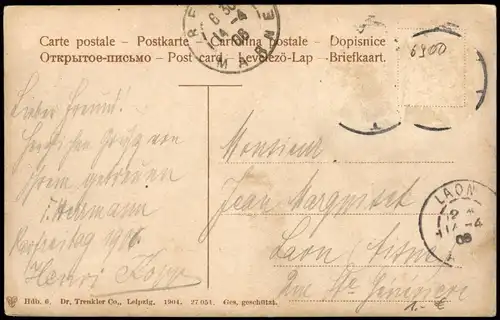 Carte postale – Postkarte – Cartolina postale – Dopisnice
Открытое-письмо – Post card – Levelező-Lap – Briefkaart.
REIMS
6 30
14-4
06
MARNE
6900
Lieber Freund!
Herzlichen Gruß von
Ihrem getreuen
J. Hermann
Karfreitag 1906
Henri Kopp
Monsieur
Jean Marquiset
Laon (Aisne)
Ste Geneviève
LAON
12
14-4
06
1.- €
Hdb. 6. Dr. Trenkler Co., Leipzig. 1904. 27 051. Ges. geschützt.